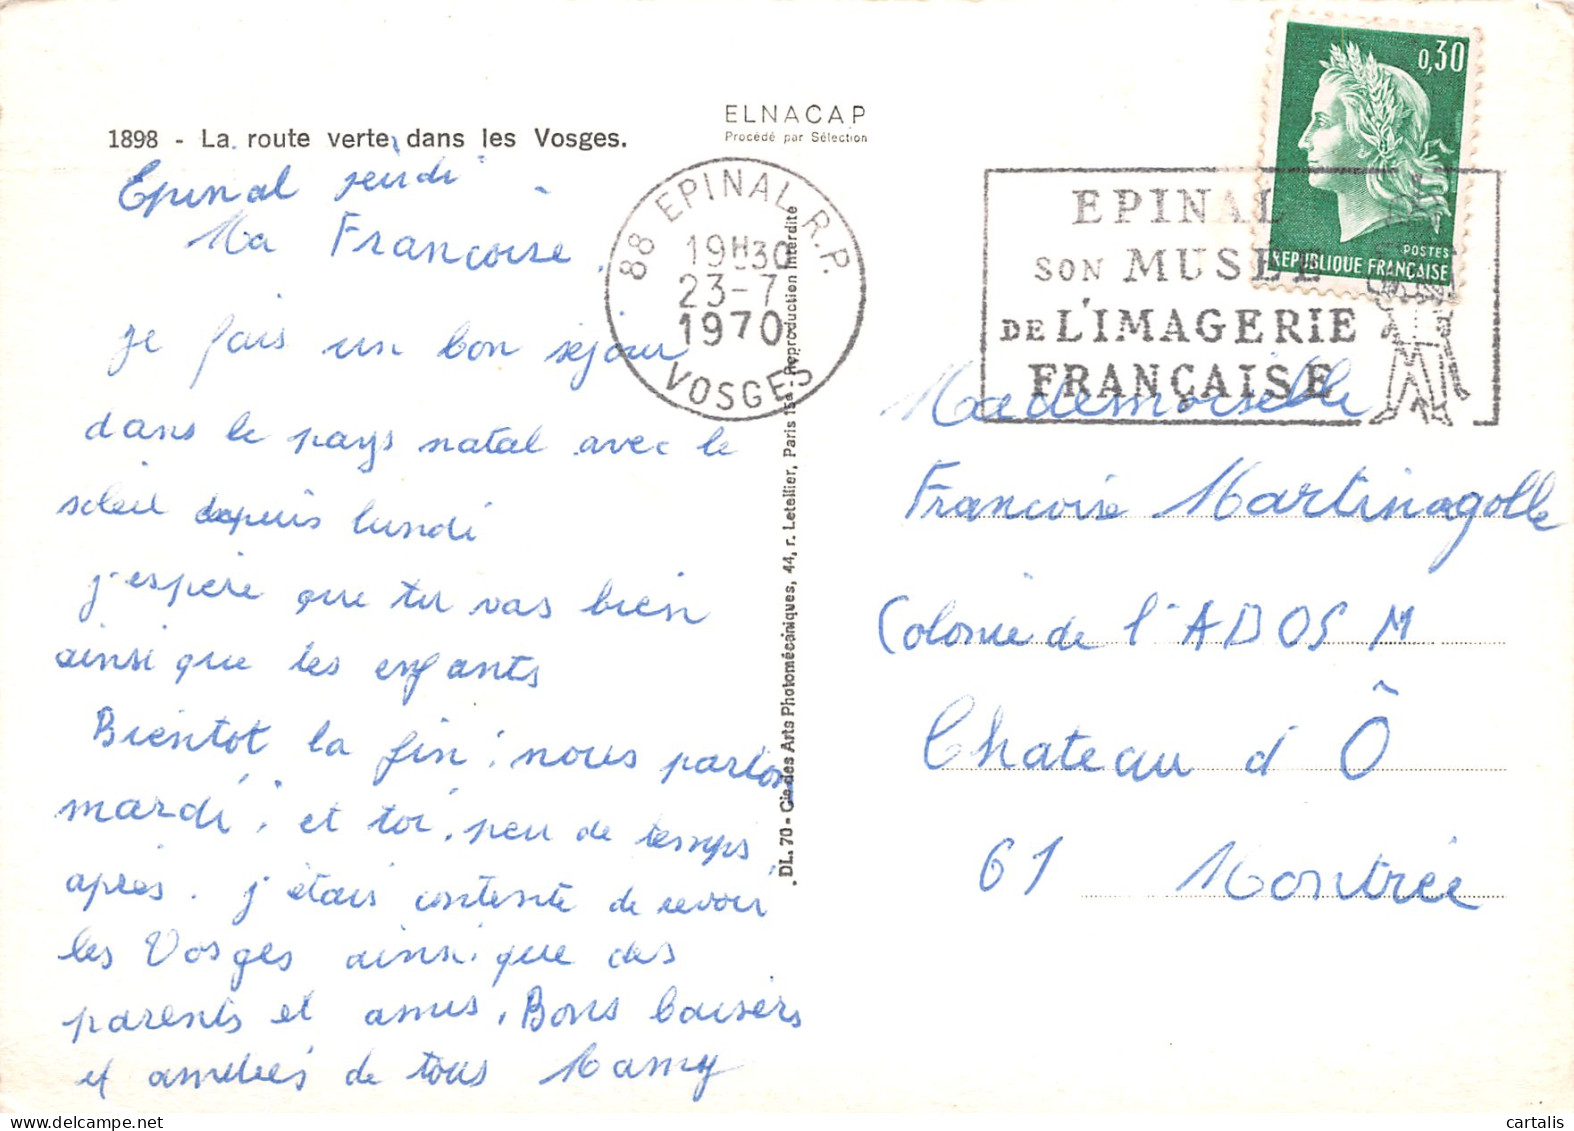 1898 - La route verte dans les Vosges.
ELNACAP
Procédé par Sélection
Epinal jeudi
Ma Francoise.
je fais un bon sejour
dans le pays natal avec le
soleil depuis lundi
j'espère que tu vas bien
ainsi que les enfants
Bientot la fin; nous partons
mardi; et toi, peu de temps
après. j'étais contente de revoir
les Vosges ainsi que des
parents et amis. Bons baisers
et amitiés de tous Mamy
88 EPINAL R.P.
19H30
23-7
1970
VOSGES
DL. 70 - Cie des Arts Photomécaniques, 44, r. Letellier, Paris 15e - Reproduction Interdite
EPINAL
SON MUSÉE
DE L'IMAGERIE
FRANÇAISE
0,30
POSTES
REPUBLIQUE FRANÇAISE
Mademoiselle
Francoise Martinagolle
Colonie de l'ADOS M
Chateau d'Ô
61 Montrée
cartalis